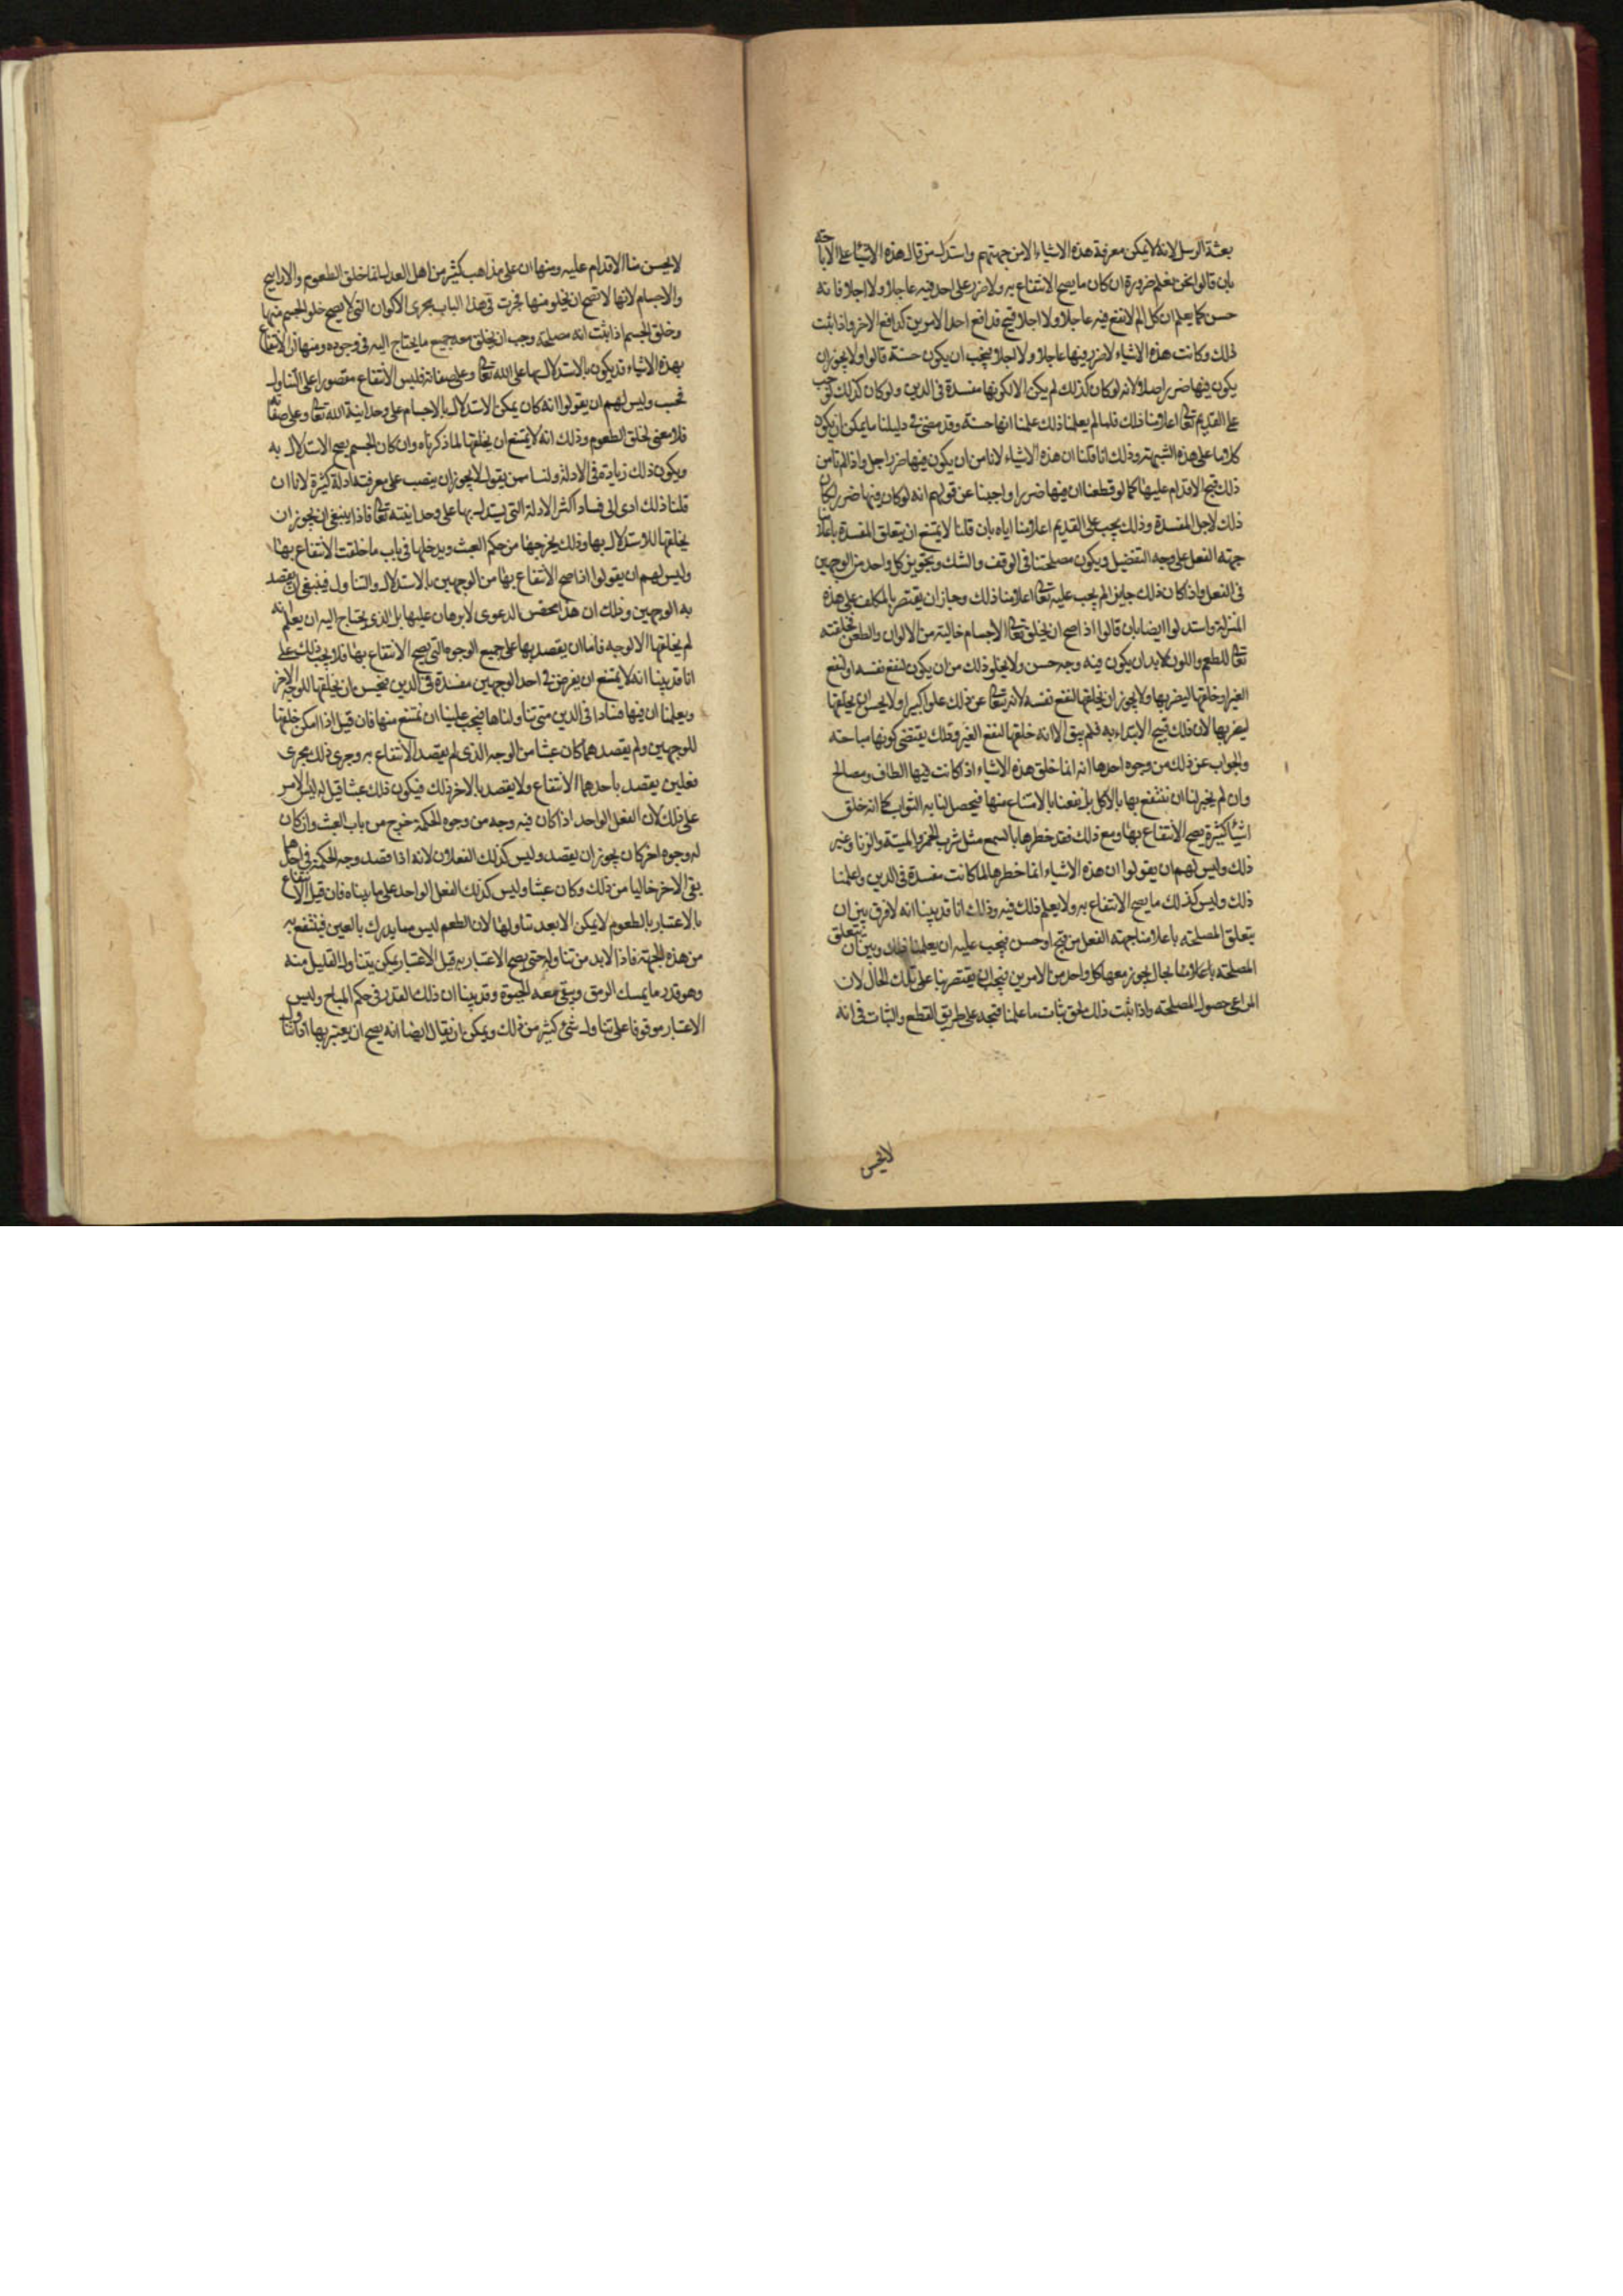 بعثة الرسل لانه لا يمكن معرفة هذه الاشياء الا من جهتهم واستدل من قال هذه الاشياء على الاباحة
بان قالوا نحن نعلم ضرورة ان كان ما يصح الانتفاع به ولا ضرر على احد فيه عاجلا ولا اجلا فانه
حسن كما يعلم ان كل الم لا نفع فيه عاجلا ولا اجلا قبيح فدافع احد الامرين كدافع الاخر واذا ثبت
ذلك وكانت هذه الاشياء لا ضرر فيها عاجلا ولا اجلا فيجب ان يكون حسنة قالوا ولا يجوز ان
يكون فيها ضرر اصلا لانه لو كان كذلك لم يكن الا لكونها مفسدة فى الدين ولو كان كذلك لوجب
على القديم تعالى اعلامنا ذلك فلما لم يعلمنا ذلك علمنا انها حسنة وقد مضى فى دليلنا ما يمكن ان يكون
كلاما على هذه الشبهة وذلك انا قلنا ان هذه الاشياء لا نامن ان يكون فيها ضرر اجل واذا لم نامن
ذلك قبح الاقدام عليها كما لو قطعنا ان فيها ضررا واجبنا عن قولهم انه لو كان فيها ضرر لكان
ذلك لاجل المفسدة وذلك يجب على القديم اعلامنا اياه بان قلنا لا يمتنع ان يتعلق المفسدة باعلامنا
جهة الفعل على وجه التفصيل ويكون مصلحتنا فى الوقف والشك وتجويز كل واحد من الوجهين
فى الفعل واذا كان ذلك جايزا لم يجب عليه تعالى اعلامنا ذلك وجاز ان يقتصر بالمكلف على هذه
المنزلة واستدلوا ايضا بان قالوا اذا صح ان يخلق تعالى الاجسام خالية من الالوان والطعوم فخلقته
تعالى للطعم واللون لا بد ان يكون فيه وجه حسن ولا يخلو ذلك من ان يكون لنفع نفسه او لنفع
الغير او خلقها ليضر بها ولا يجوز ان يخلقها لنفع نفسه لانه تعالى عن ذلك علوا كبيرا ولا يحسن ان يخلقها
ليضر بها لان ذلك قبيح الابتداء به فلم يبق الا انه خلقها لنفع الغير وذلك يقتضى كونها مباحة
والجواب عن ذلك من وجوه احدها انه انما خلق هذه الاشياء اذ كانت فيها الطاف ومصالح
وان لم يجز لنا ان ننتفع بها بالاكل بل نفعنا بالامتناع منها فيحصل لنا به الثواب كما انه خلق
اشيا كثيرة يصح الانتفاع بها ومع ذلك فقد حظرها بالسمع مثل شرب الخمر والميتة والزنا وغير
ذلك وليس لهم ان يقولوا ان هذه الاشياء انما حظرها لما كانت مفسدة فى الدين واعلمنا
ذلك وليس كذلك ما يصح الانتفاع به ولا يعلم ذلك فيه وذلك انا قد بينا انه لا فرق بين ان
يتعلق المصلحة باعلامنا جهة الفعل من قبح او حسن فيجب عليه ان يعلمنا ذلك وبين ان يتعلق
المصلحة باعلامنا بحال يجوز معها كل واحد من الامرين فيجب ان يقتصر بنا على تلك الحال لان
المراعى حصول المصلحة واذا ثبت ذلك لحق بثبات ما علمنا قبحه على طريق القطع والثبات فى انه
لا يحسن
لا يحسن منا الاقدام عليه ومنها ان على مذاهب كثير من اهل العدل انما خلق الطعوم والاراييح
والاجسام لانها لا تصح ان يخلو منها فجرت فى هذا الباب مجرى الاكوان التى لا يصح خلو الجسم منها
وخلق الجسم اذا ثبت انه مصلحة وجب ان يخلق معه جميع ما يحتاج اليه فى وجوده ومنها ان الانتفاع
بهذه الاشياء قد يكون بالاستدلال بها على الله تعالى وعلى صفاته فليس الانتفاع مقصورا على التناول
فحسب وليس لهم ان يقولوا انه كان يمكن الاستدلال بالاجسام على وحدانية الله تعالى وعلى صفاته
فلا معنى لخلق الطعوم وذلك انه لا يمتنع ان يخلقها لما ذكرناه وان كان الجسم يصح الاستدلال به
ويكون ذلك زيادة فى الادلة ولسنا ممن يقول لا يجوز ان ينصب على معرفته ادلة كثيرة لانا ان
قلنا ذلك ادى الى فساد اكثر الادلة التى يستدل بها على وحدانيته تعالى فاذا ينبغى ان يجوز ان
يخلقها للاستدلال بها وذلك يخرجها من حكم العبث ويدخلها فى باب ما خلقت الانتفاع بها
وليس لهم ان يقولوا اذا صح الانتفاع بها من الوجهين بالاستدلال والتناول فينبغى ان يقصد
به الوجهين وذلك ان هذا محض الدعوى لا برهان عليها بل الذى يحتاج اليه ان يعلم انه
لم يخلقها الا لوجه فاما ان يقصد بها على جميع الوجوه التى يصح الانتفاع بها فلا يجب ذلك على
انا قد بينا انه لا يمتنع ان يفرض فى احد الوجهين مفسدة فى الدين فيحسن ان يخلقها للوجه الاخر
ويعلمنا ان فيها فسادا فى الدين متى تناولناها فيجب علينا ان نمتنع منها فان قيل اذا امكن خلقها
للوجهين ولم يقصدهما كان عبثا من الوجه الذى لم يقصد الانتفاع به وجرى ذلك مجرى
فعلين يقصد باحدهما الانتفاع ولا يقصد بالاخر ذلك فيكون ذلك عبثا قيل له ليس الامر
على ذلك لان الفعل الواحد اذا كان فيه وجه من وجوه الحكمة خرج من باب العبث وان كان
له وجوه اخر كان يجوز ان يقصد وليس كذلك الفعلان لانه اذا قصد وجه الحكمة فى احدهما
بقى الاخر خاليا من ذلك وكان عبثا وليس كذلك الفعل الواحد على ما بيناه فان قيل الانتفاع
بالاعتبار بالطعوم لا يمكن الا بعد تناولها لان الطعم ليس مما يدرك بالعين فينتفع به
من هذه الجهة فاذا لابد من تناوله حتى يصح الاعتبار به قيل الاعتبار يمكن بتناول القليل منه
وهو قدر ما يمسك الرمق ويبقى معه الحيوة وقد بينا ان ذلك القدر فى حكم المباح وليس
الاعتبار موقوفا على تناول شئ كثير من ذلك ويمكن ان يقال ايضا انه يصح ان يعتبر بها اذا تناول